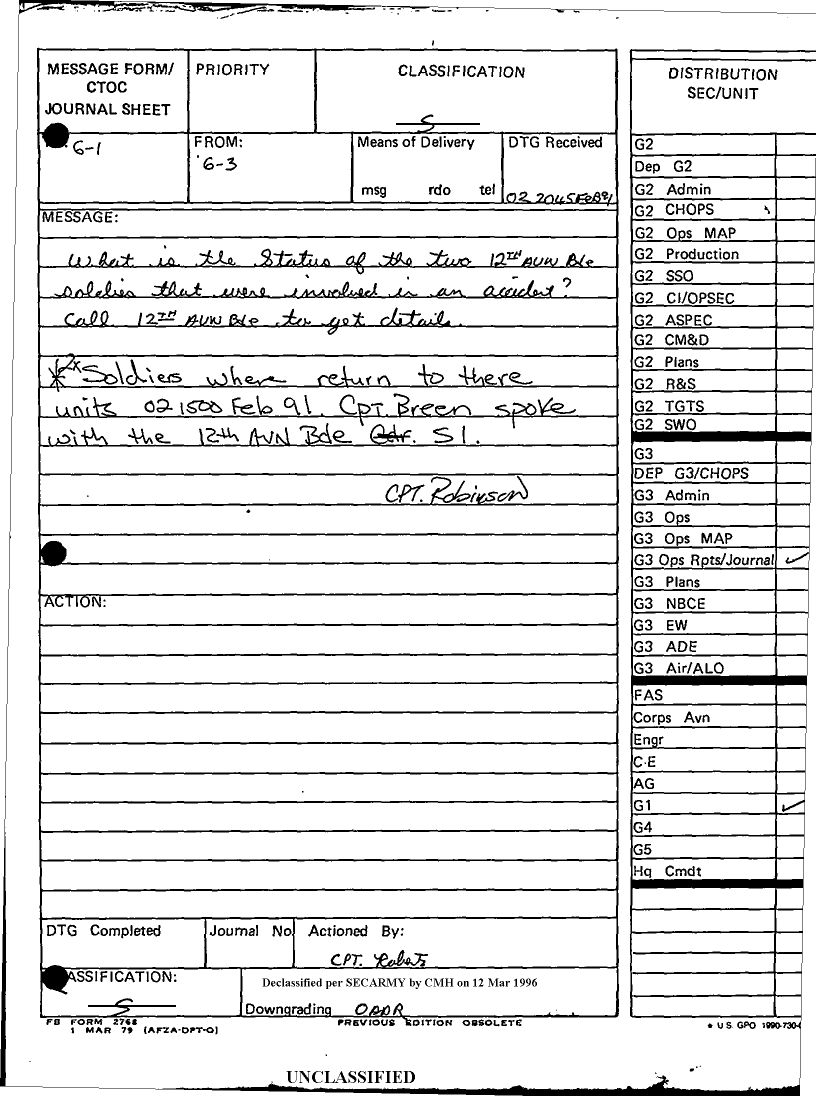 MESSAGE FORM/
CTOC
JOURNAL SHEET
PRIORITY
CLASSIFICATION
S
G-1
FROM:
G-3
Means of Delivery
msg rdo tel
DTG Received
02 2045 Feb 91
MESSAGE:
What is the Status of the two 12TH AVN Bde
soldies that were involved in an accident?
Call 12TH AVN Bde to get details.
* 2x Soldiers where return to there
units 02 1500 Feb 91. Cpt. Breen spoke
with the 12th AVN Bde Cdr. S1.
CPT. Robinson
ACTION:
DTG Completed
Journal No
Actioned By:
CPT.
ASSIFICATION:
S
Declassified per SECARMY by CMH on 12 Mar 1996
Downgrading OADR
FB FORM 2768
1 MAR 79 (AFZA-DPT-O)
PREVIOUS EDITION OBSOLETE
UNCLASSIFIED
DISTRIBUTION
SEC/UNIT
G2
Dep G2
G2 Admin
G2 CHOPS
G2 Ops MAP
G2 Production
G2 SSO
G2 CI/OPSEC
G2 ASPEC
G2 CM&D
G2 Plans
G2 R&S
G2 TGTS
G2 SWO
G3
DEP G3/CHOPS
G3 Admin
G3 Ops
G3 Ops MAP
G3 Ops Rpts/Journal ✓
G3 Plans
G3 NBCE
G3 EW
G3 ADE
G3 Air/ALO
FAS
Corps Avn
Engr
C-E
AG
G1 ✓
G4
G5
Hq Cmdt
* U.S. GPO 1990-730-